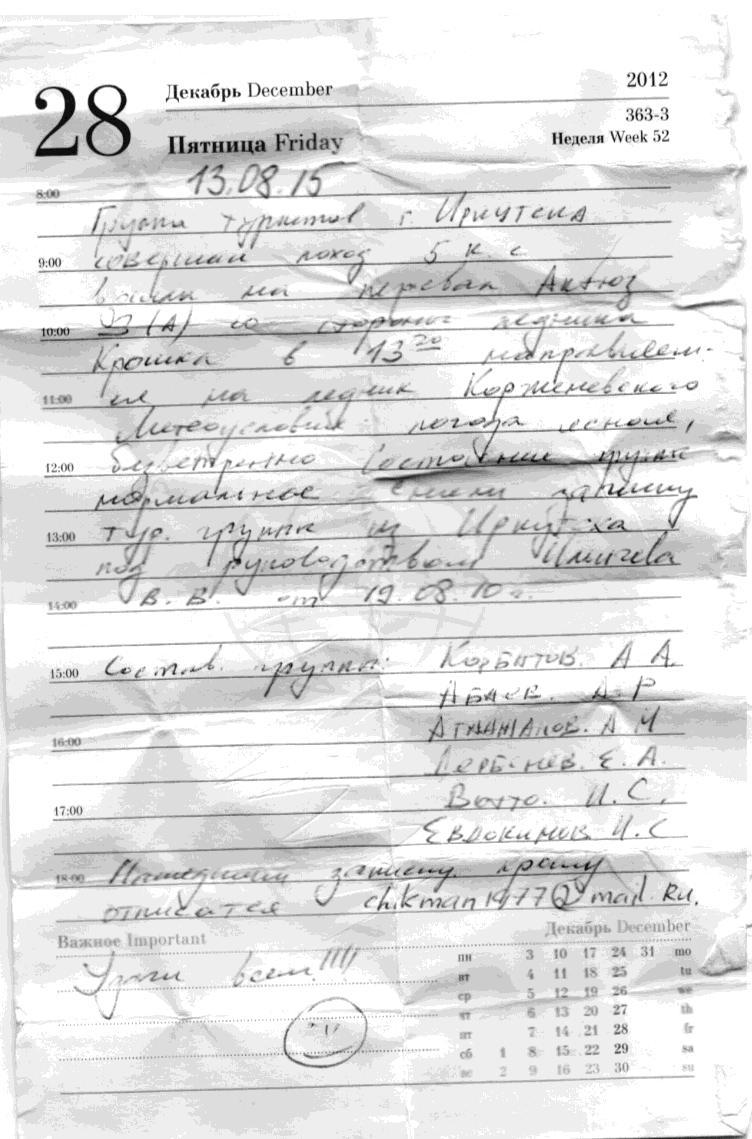 28
Декабрь December
2012
Пятница Friday
363-3
Неделя Week 52
13.08.15
8:00
Группа туристов г. Иркутска
9:00
совершая поход 5 к.с
взошли на перевал Актюз
10:00
(А) со стороны ледника
Крошка в 13 20 направляем-
11:00
ся на ледник Корженевского
Метеоусловия: погода ясная,
12:00
безветренно Состояние группы
нормальное Сняли записку
13:00
тур. группы из Иркутска
под руководством
14:00
В. В. от 19.08.10 г.
15:00
Состав группы: А А.
Абаев. А Р
16:00
Агжанов. А М
Дербенев. Е. А.
17:00
И. С.
Евдокимов И. С
18:00
Нашедший записку прошу
отписатся chikman1977@mail.Ru.
Важное Important
Декабрь December
Удачи всем!!!!
пн 3 10 17 24 31 mo
вт 4 11 18 25 tu
ср 5 12 19 26 we
чт 6 13 20 27 th
пт 7 14 21 28 fr
сб 1 8 15 22 29 sa
вс 2 9 16 23 30 su